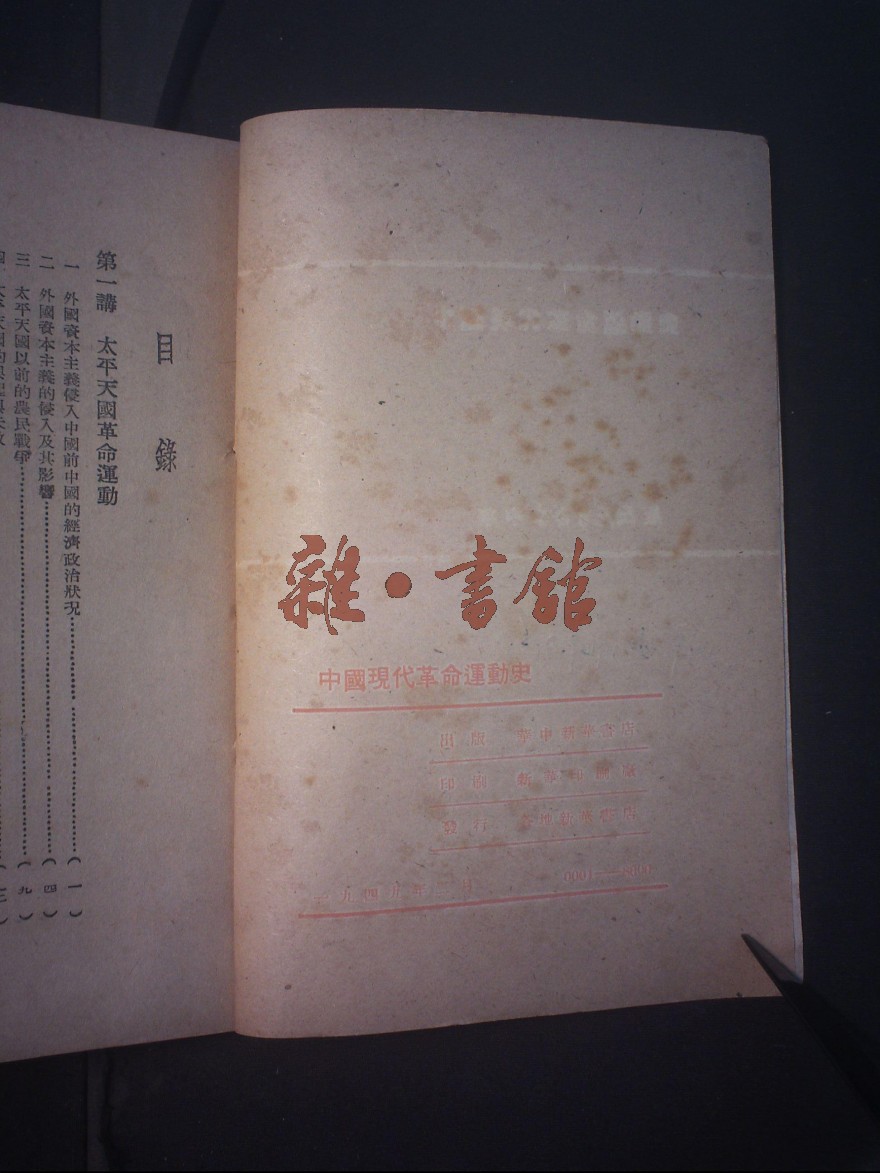 中國現代革命運動史
出版 華中新華書店
印刷 新華印刷廠
發行 各地新華書店
一九四九年二月
0001——3000
目錄
第一講 太平天國革命運動
一 外國資本主義侵入中國前中國的經濟政治狀況……(一)
二 外國資本主義的侵入及其影響……(四)
三 太平天國以前的農民戰爭……(九)
雜·書館